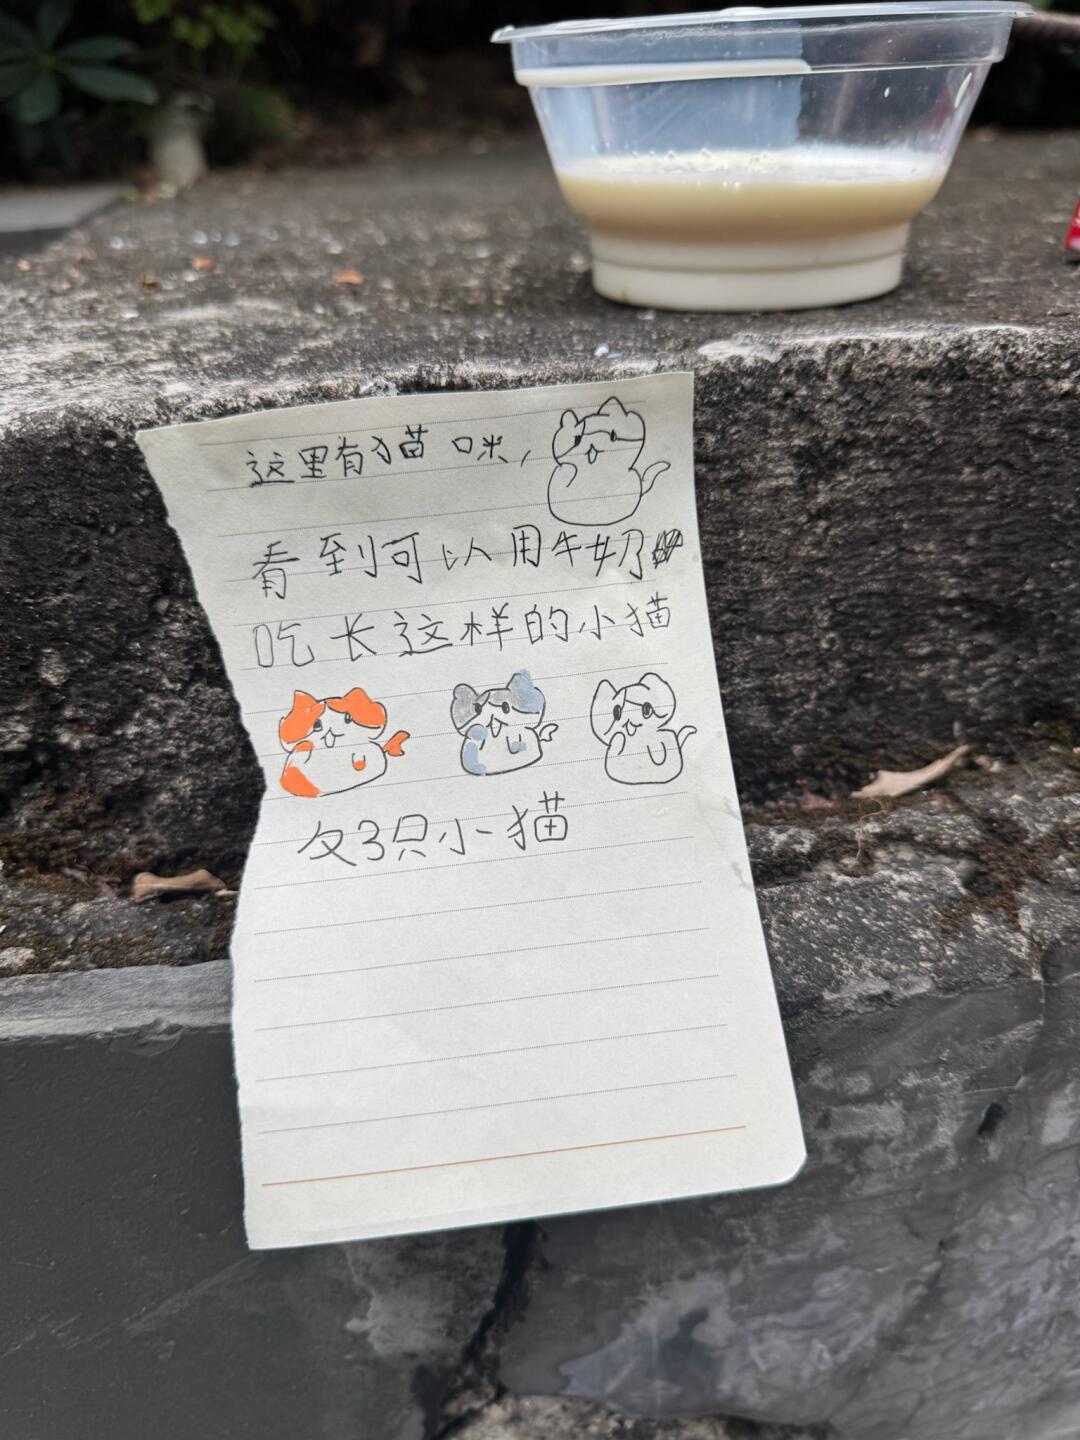 这里有猫咪，
看到可以用牛奶
吃长这样的小猫
3只小猫